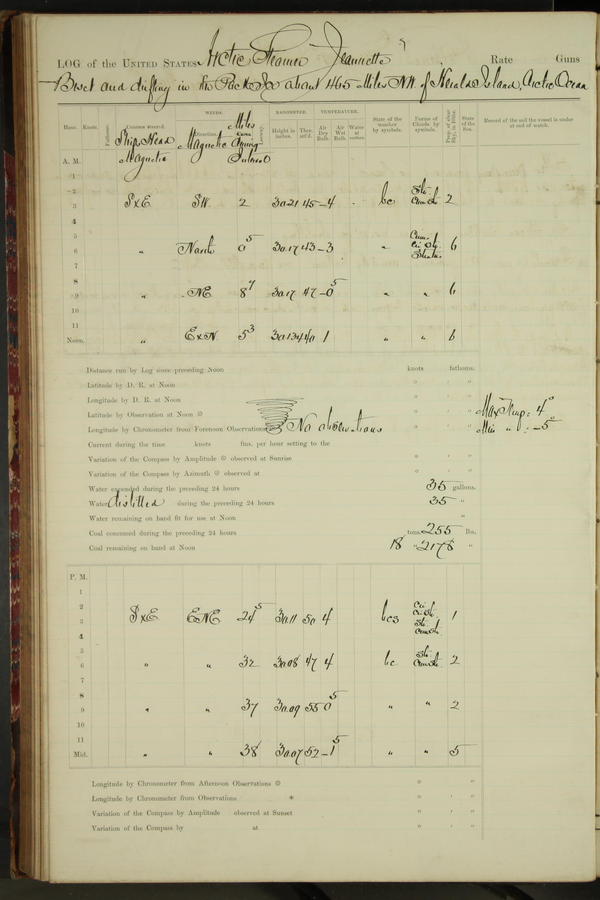 LOG of the UNITED STATES Arctic Steamer Jeannette Rate Guns
Beset and drifting in the Pack Ice about 465 Miles NW. of Herald Island, Arctic Ocean
Hour. Knots. Fathoms. Courses steered. WINDS. Direction. Leeway. BAROMETER. Height in inches. Ther. att'd. TEMPERATURE. Air Dry Bulb. Air Wet Bulb. Water at surface. State of the weather by symbols. Forms of Clouds by symbols. State of the Sea. Record of the sail the vessel is under at end of watch.
Ship's Head Magnetic Magnetic Miles
A. M.
1
2
3 S x E SW. 2 30.21 45 -4 bc Str. Cum. Str. 2
4
5
6 " North 0 5 30.17 43 -3 " 6
7
8
9 " NE 8 7 30.17 47 -0 5 " " 6
10
11
Noon. " E x N. 5 3 30.13 44 1 " " 6
Distance run by Log since preceding Noon knots fathoms.
Latitude by D. R. at Noon ° ' "
Longitude by D. R. at Noon ° ' "
Latitude by Observation at Noon ° ' " Max Temp: 4°
Longitude by Chronometer from Forenoon Observations No observations ° ' " Min " : -5°
Current during the time knots fms. per hour setting to the
Variation of the Compass by Amplitude observed at Sunrise ° ' "
Variation of the Compass by Azimuth observed at ° ' "
Water expended during the preceding 24 hours 35 gallons.
Water distilled during the preceding 24 hours 35 "
Water remaining on hand fit for use at Noon "
Coal consumed during the preceding 24 hours tons, 255 lbs.
Coal remaining on hand at Noon 18 " 2178 "
P. M.
1
2
3 S x E ENE 24 5 30.11 50 4 bcs Cir. Cir. Str. Str. Cum. Str. 1
4
5
6 " " 32 30.08 47 4 bc Str. Cum. Str. 2
7
8
9 " " 37 30.09 55 0 5 " " 2
10
11
Mid. " " 38 30.07 52 -1 5 " " 5
Longitude by Chronometer from Afternoon Observations ° ' "
Longitude by Chronometer from Observations * ° ' "
Variation of the Compass by Amplitude observed at Sunset ° ' "
Variation of the Compass by at ° ' "